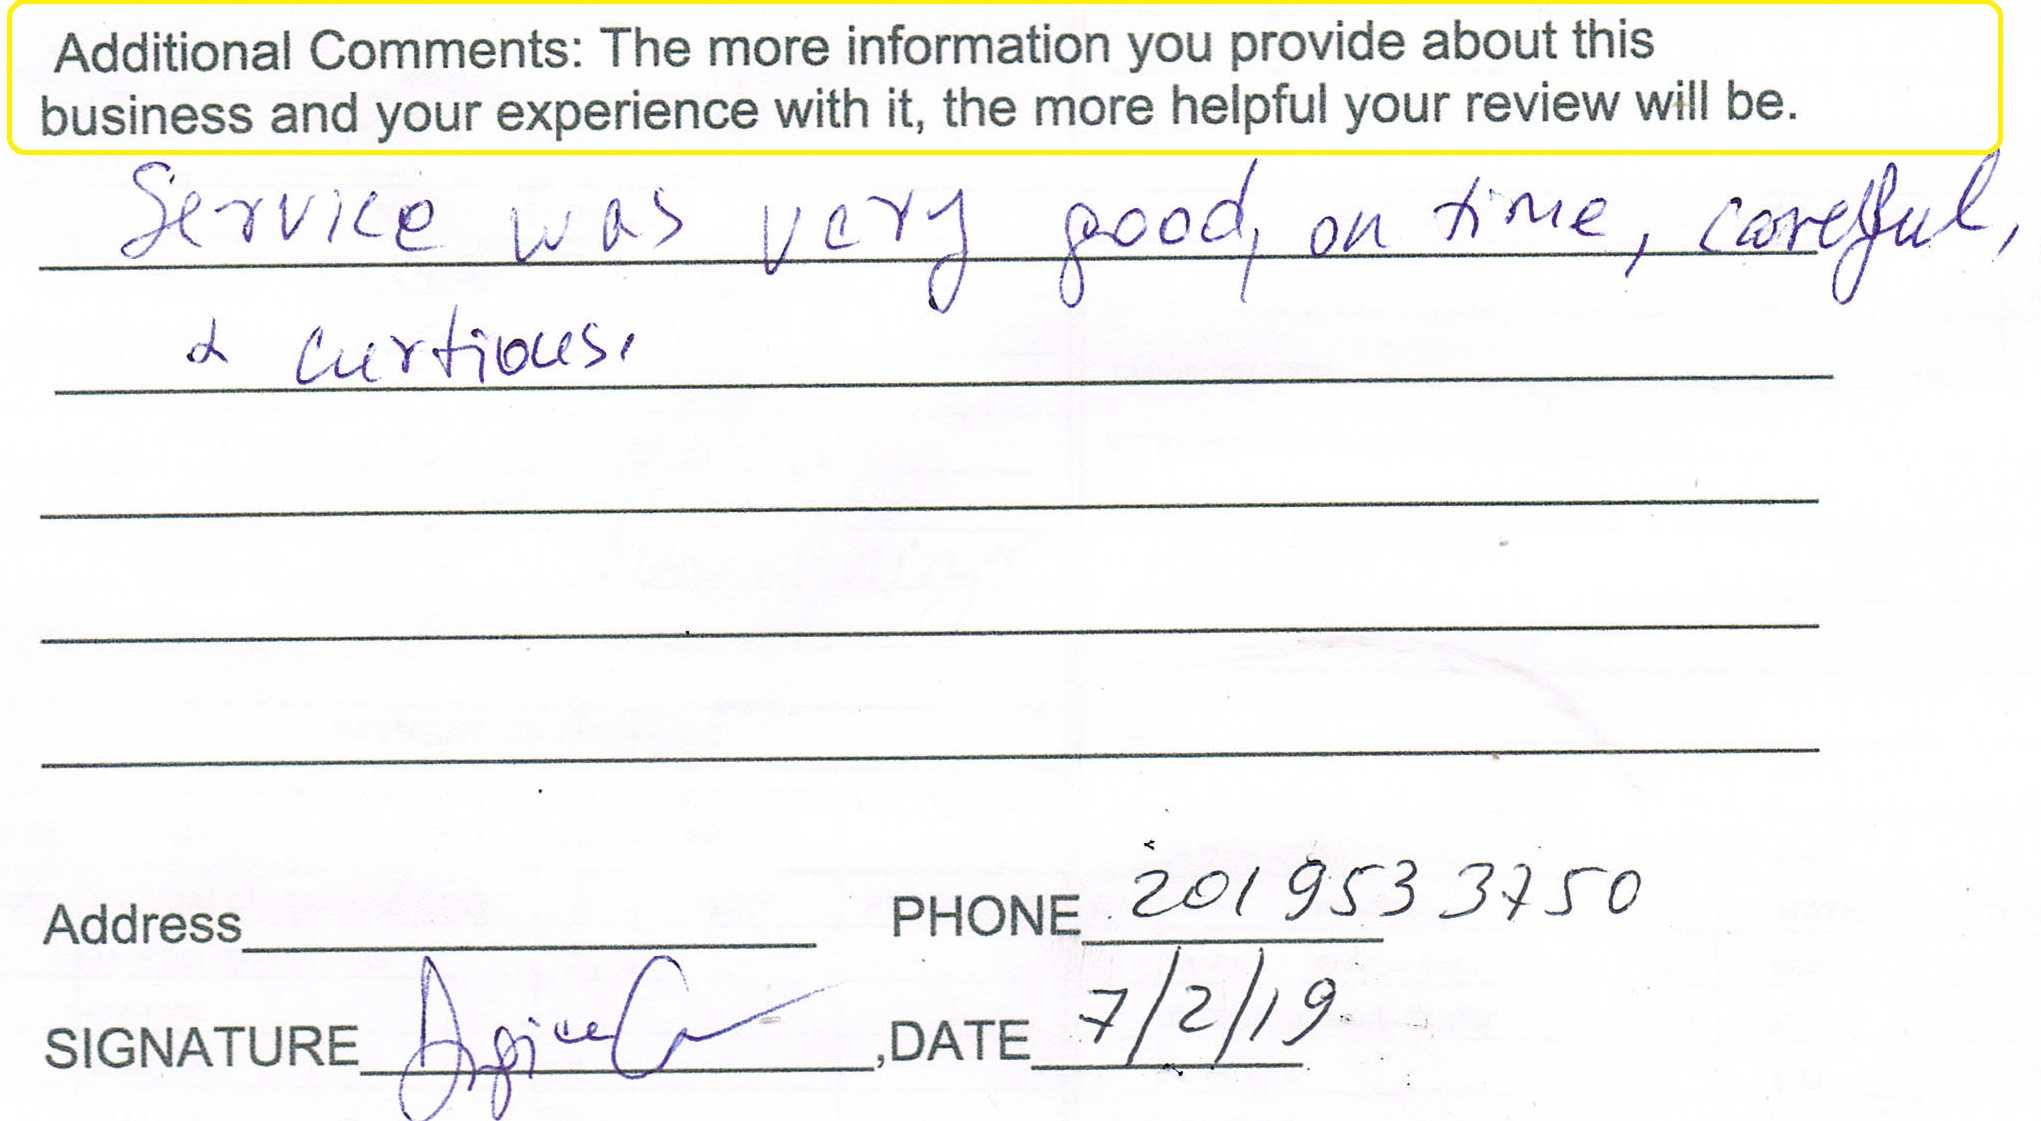 Additional Comments: The more information you provide about this
business and your experience with it, the more helpful your review will be.
Service was very good, on time, careful,
& curtious.
Address
PHONE 201 953 3750
SIGNATURE
,DATE 7/2/19